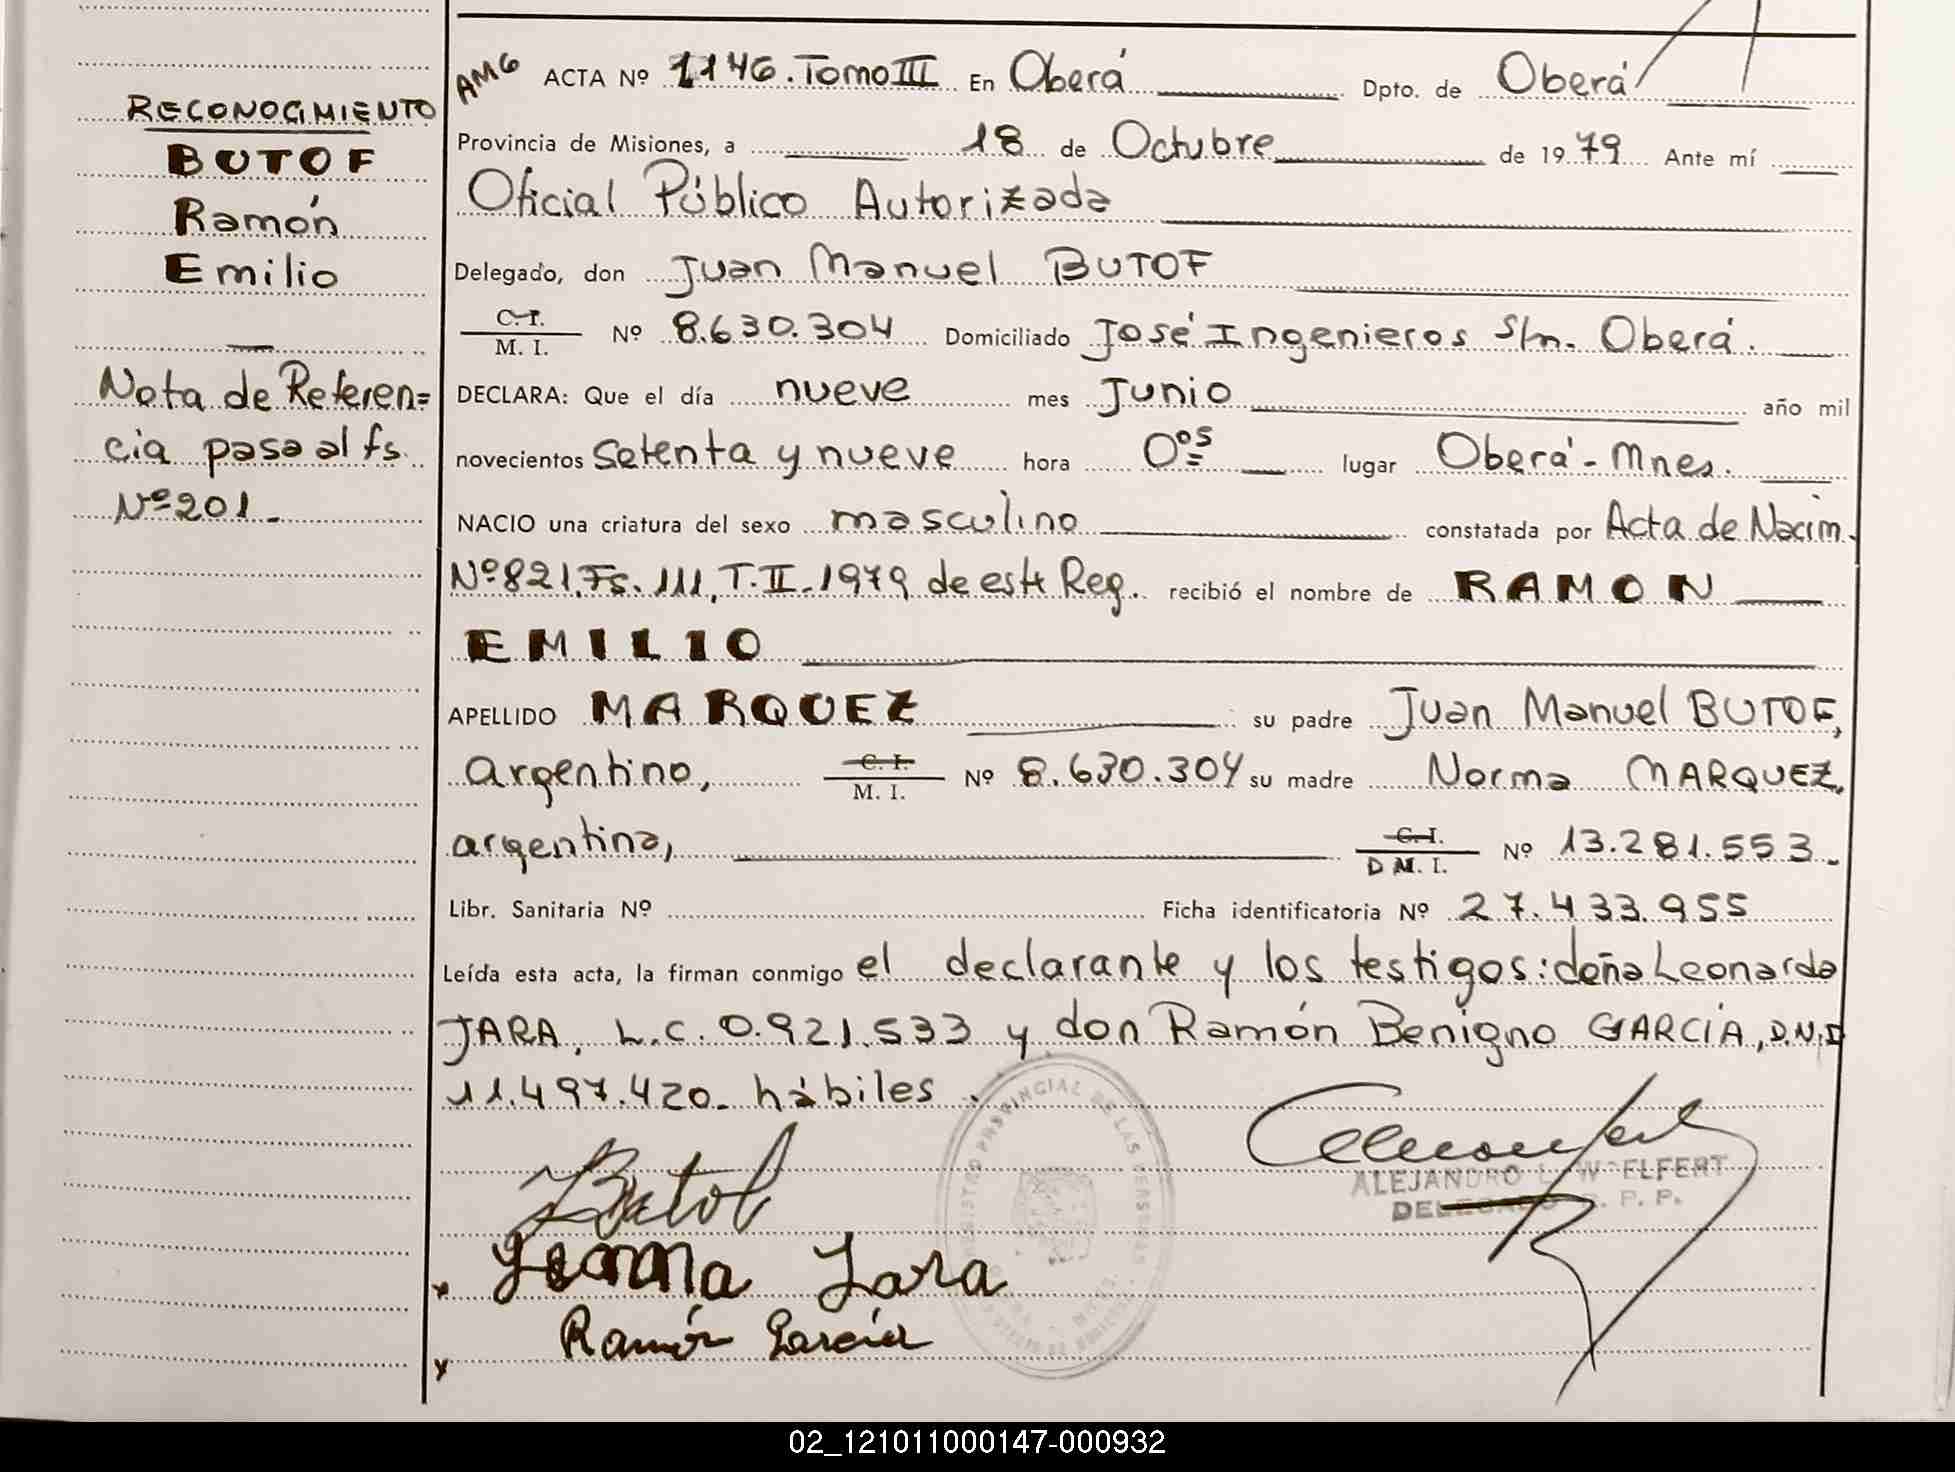 RECONOCIMIENTO
BUTOF
Ramón
Emilio
Nota de Referen=
cia pasa al fs.
Nº 201.-
AMG ACTA Nº 1146. Tomo III En Oberá Dpto. de Oberá
Provincia de Misiones, a 18 de Octubre de 1979 Ante mí
Oficial Público Autorizada
Delegado, don Juan Manuel BUTOF
C. I.
M. I. Nº 8.630.304 Domiciliado José Ingenieros s/n. Oberá.
DECLARA: Que el día nueve mes Junio año mil
novecientos setenta y nueve hora 0os lugar Oberá - Mnes.
NACIO una criatura del sexo masculino constatada por Acta de Nacim.
Nº 821, Fs. 111, T. II - 1979 de este Reg. recibió el nombre de RAMON
EMILIO
APELLIDO MARQUEZ su padre Juan Manuel BUTOF,
argentino, C. I.
M. I. Nº 8.630.304 su madre Norma MARQUEZ,
argentina, C. I.
D M. I. Nº 13.281.553.-
Libr. Sanitaria Nº Ficha identificatoria Nº 27.433.955
Leída esta acta, la firman conmigo el declarante y los testigos: doña Leonarda
JARA, L.C. 0.921.533 y don Ramón Benigno GARCÍA, D.N.I
11.497.420. hábiles.
Butof
Jara
Ramón García
REGISTRO PROVINCIAL DE LAS PERSONAS
ALEJANDRO L. WOELFERT
DELEGADO R. P. P.
02_121011000147-000932